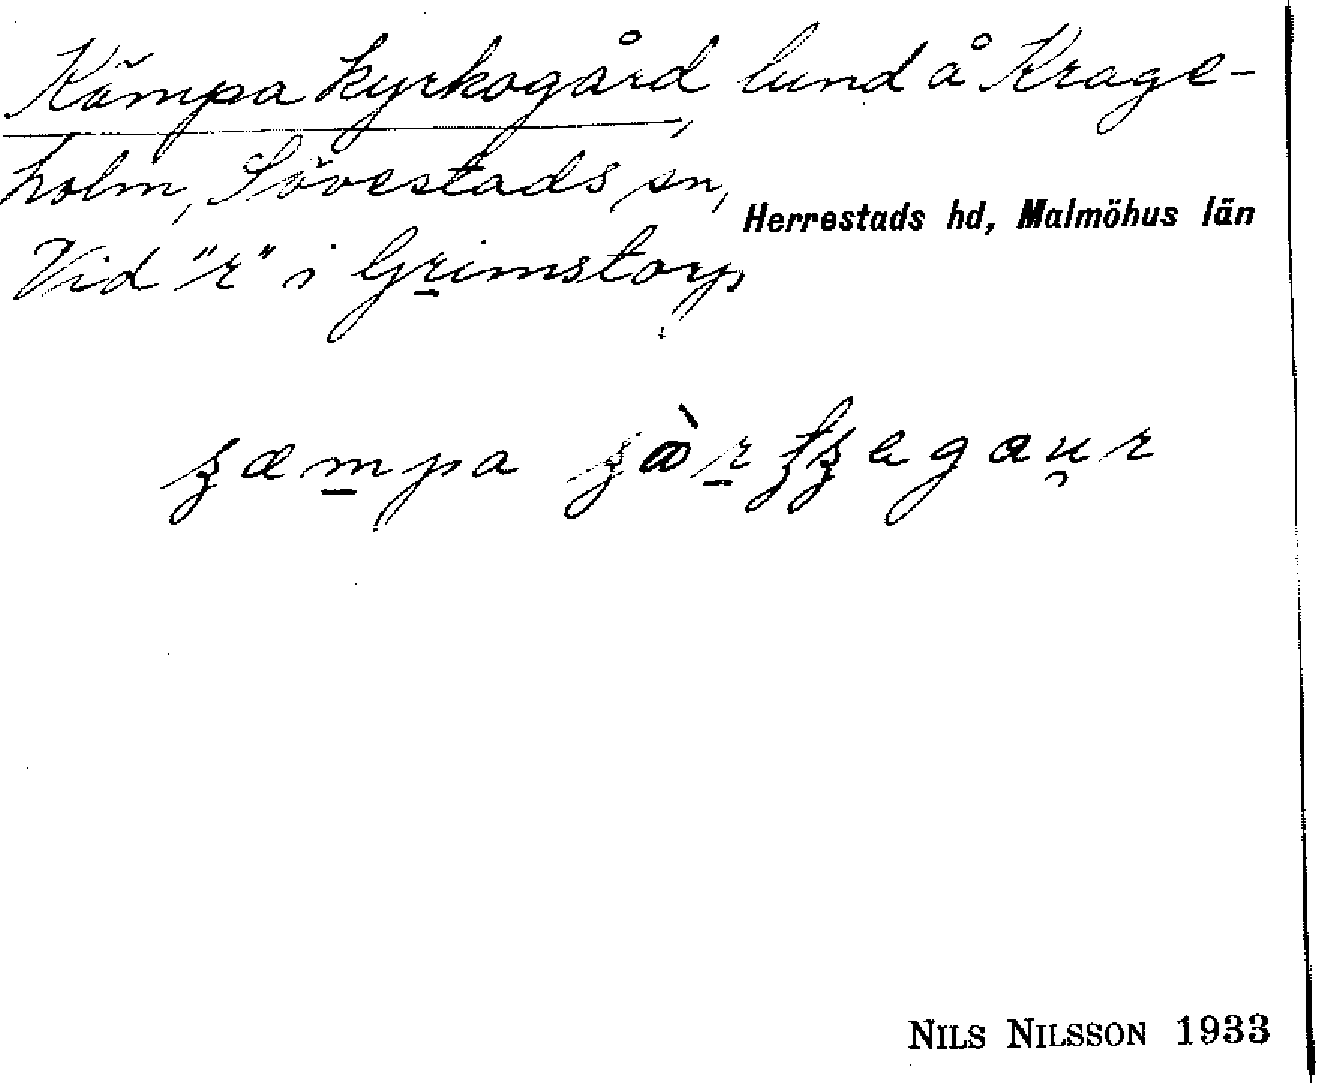 Kämpa kyrkogård, lund å Krage-
holm, Sövestads sn,
Herrestads hd, Malmöhus län
Vid "r" i Grimstorp
NILS NILSSON 1933